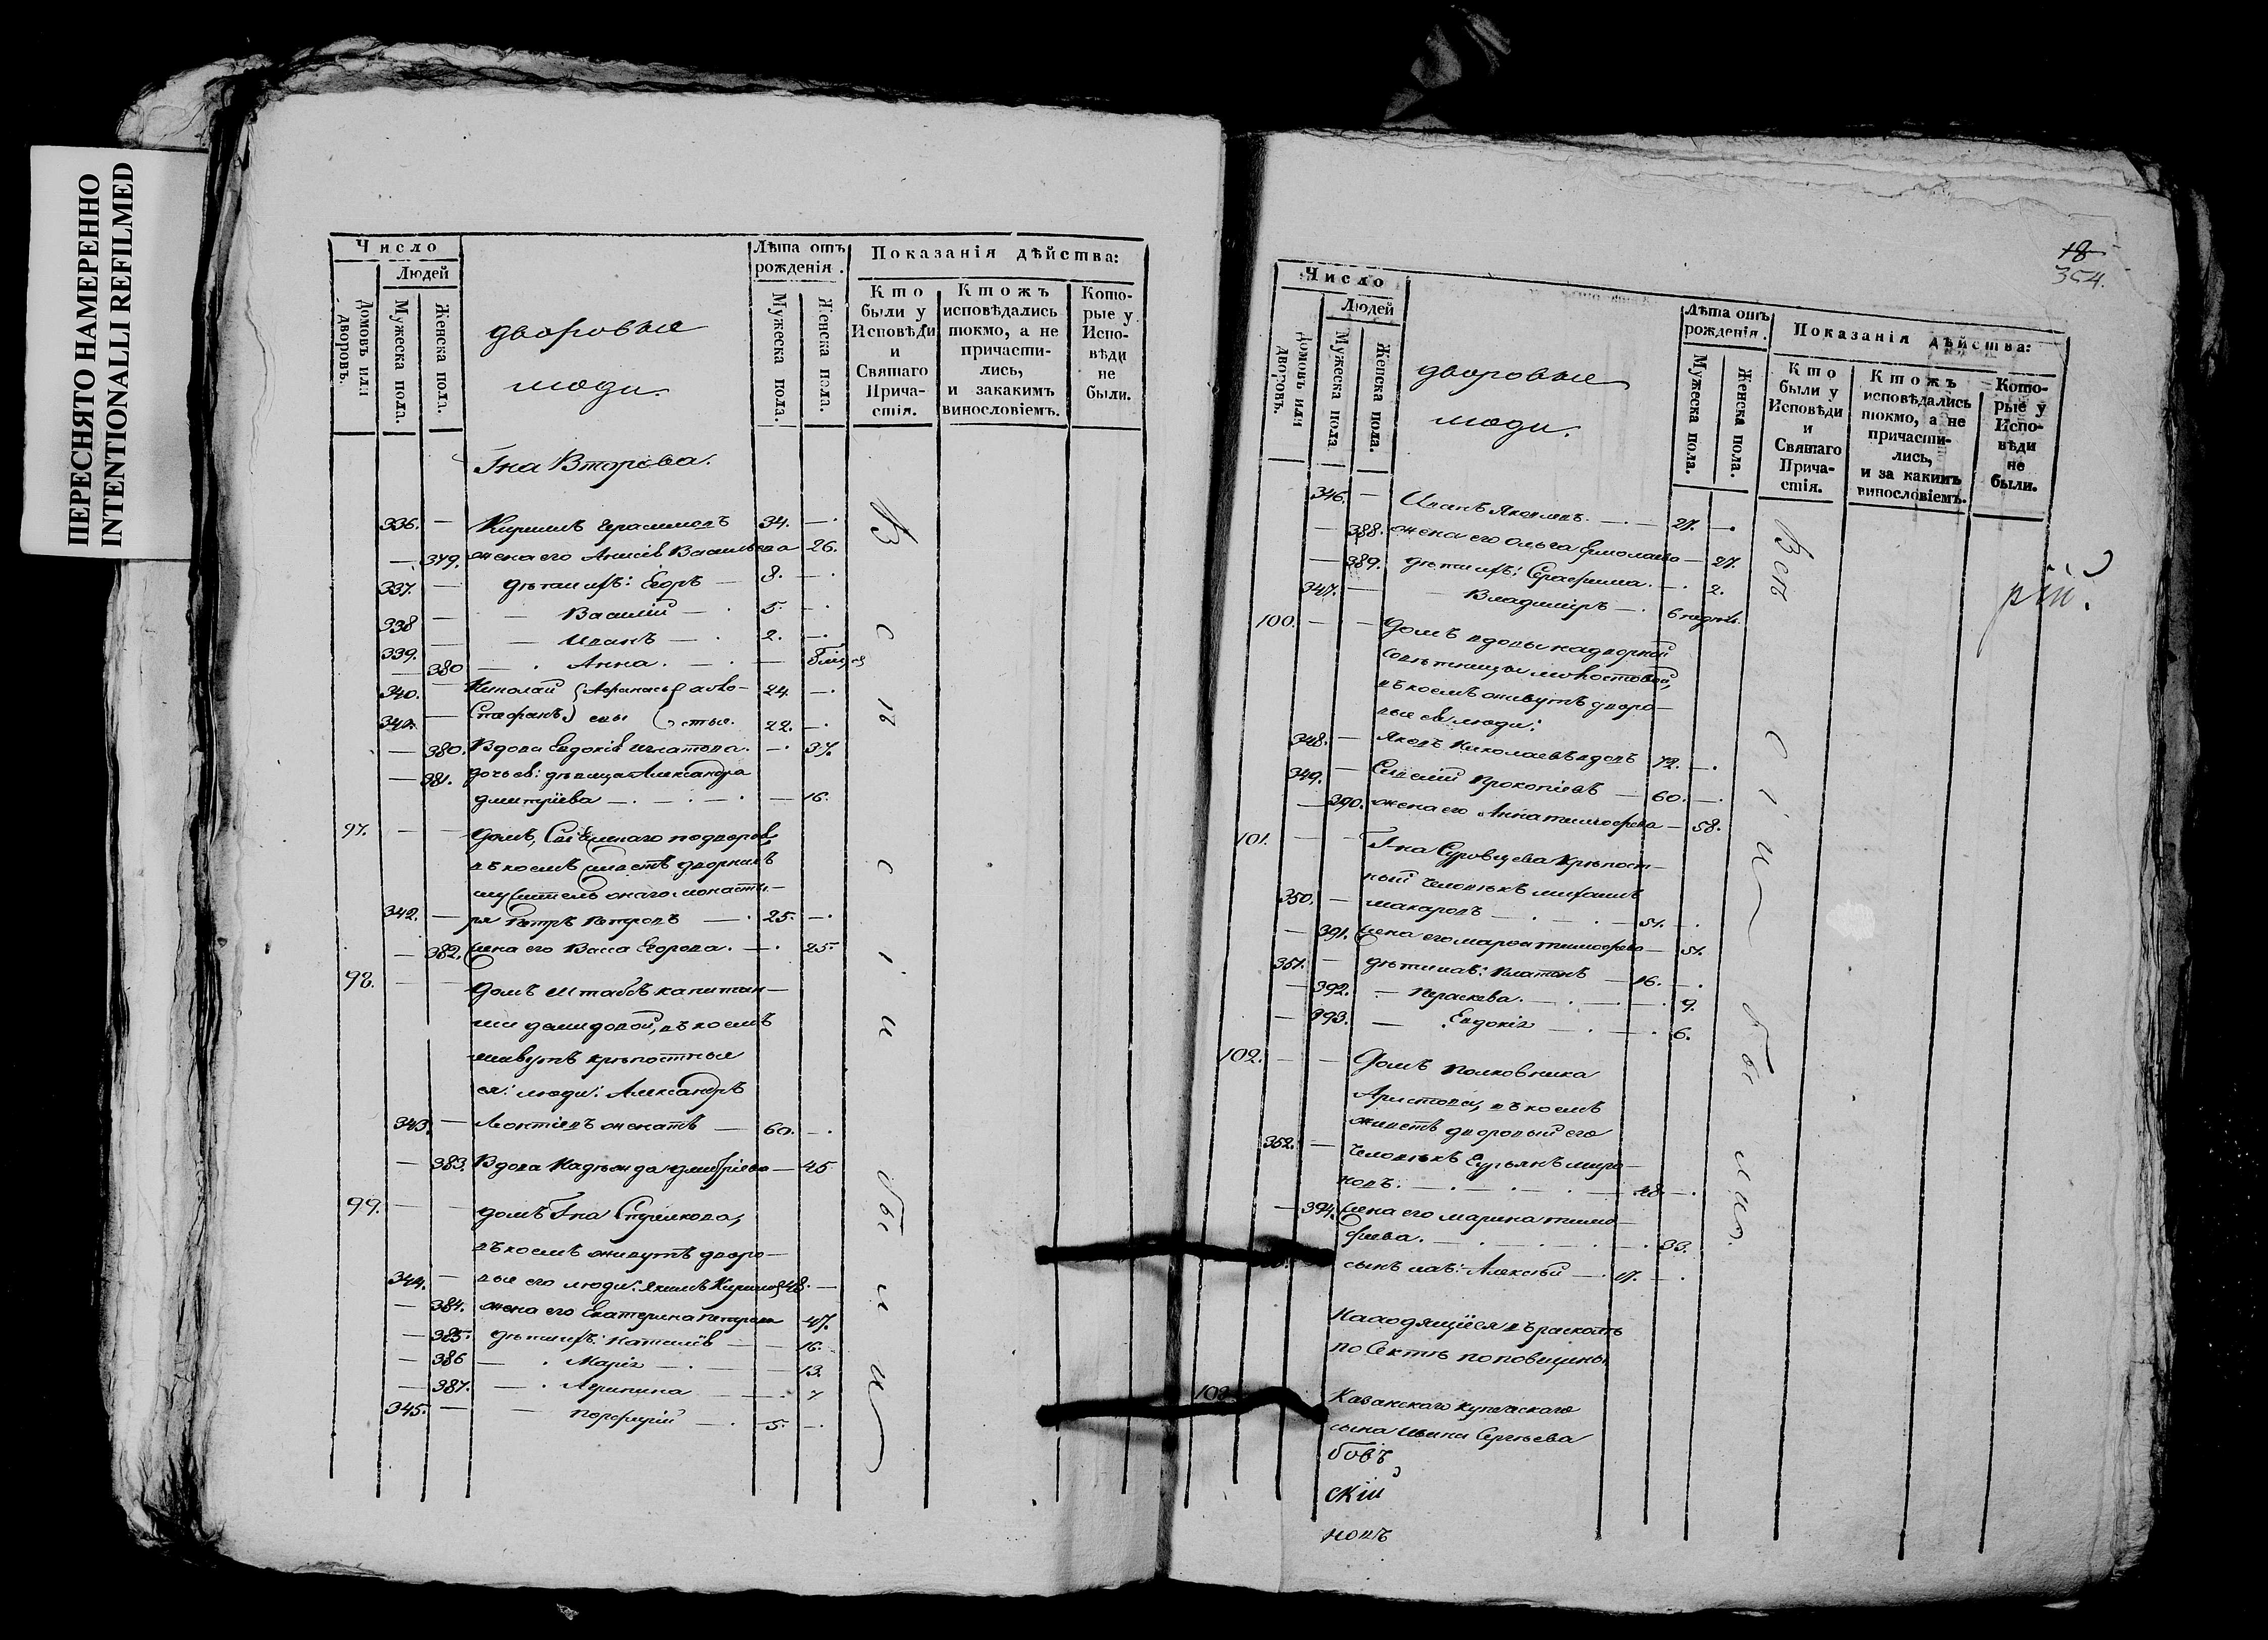 ПЕРЕСНЯТО НАМЕРЕННО
INTENTIONALLI REFILMED
Число
Людей
Домовъ или дворовъ.
Мужеска пола.
Женска пола.
дворовые
люди.
Лѣта отъ рожденія.
Мужеска пола.
Женска пола.
Показанія дѣйства:
Кто были у Исповѣди и Святаго Причастія.
Ктожъ исповѣдались токмо, а не причастились, и закакимъ винословіемъ.
Которые у Исповѣди не были.
Гна Второва.
336. — Кирилъ Герасимовъ 34. —
— 379. жена его Анисія Васильева 26.
337. — дѣти ихъ: Егоръ — 8. —
338 — — Василій — 5. —
339. — — Иванъ — 2. —
— 380 — Анна. — —
340. — Николай Афанась 24. —
341. — Стефанъ евы 22. —
— 380. Вдова Евдокія Игнатова. — 37.
— 381. дочь ея: дѣвица Александра
дмитріева — — 16.
97. — — домъ, подворья,
въ коемъ дворникъ
служитель онаго монасты-
342. — ря Петръ Петровъ — 25. —
— 382. жена его Васса Егорова. — 25.
98. — — домъ Штабсъ капитан-
ши демидовой, въ коемъ
живутъ крѣпостные
ея: люди: Александръ
343. — Леонтіевъ женатъ — 60. —
— 383. Вдова Надежда дмитріева — 45
99. — — домъ Гна Стрелкова,
въ коемъ живутъ дворо-
344. — вые его люди: Якимъ Кирилов 48. —
— 384. жена его Екатерина Петрова 47.
— 385. дѣти ихъ: Наталія — 16.
— 386 — Марія — 13.
— 387. — Агрипина — 7
345. — — Порфирій — 5. —
Всѣ
с
і
и
бы
ли
18
354.
Число
Людей
Домовъ или дворовъ.
Мужеска пола
Женска пола.
дворовые
люди.
Лѣта отъ рожденія.
Мужеска пола.
Женска пола.
Показанія дѣйства:
Кто были у Исповѣди и Святаго Причастія.
Ктожъ исповѣдались токмо, а не причастились, и за какимъ винословіемъ.
Которые у Исповѣди не были.
346. — Иванъ Яковлевъ. — 27. —
— 388. жена его Ольга Ермолаева — 27.
— 389. дѣти ихъ: Серафима. — 2.
347. — — Владимиръ —
100. — — домъ вдовы надворной
совѣтницы
въ коемъ живутъ дворо-
вые ея люди:
348. — Яковъ Николаевъ вдовъ 72. —
349. — Прокопіевъ — 60. —
— 390. жена его Анна тимофеева — 58.
101. — — Г-на Суровцева крѣпост-
ный человѣкъ михаилъ
350. — макаровъ — 51. —
— 391. жена его марфа тимофеева — 51.
351. — дѣти ихъ: Платонъ — 16. —
— 392. — Параскева. — 9.
— 393. — Евдокія — 6.
102. — — домъ полковника
Аристова, въ коемъ
живетъ дворовый его
352. — человѣкъ миро-
новъ. — 48. —
— 394. жена его марина тимо-
феева. — 33.
сынъ ихъ: Алексѣй — 17. —
Находящіеся въ расколѣ
по Сектѣ поповщины
103. Казанскаго купеческаго
сына Ивана Сергѣева
бовъ
скій
новъ
Всѣ
сіи
бы
ли.
рій.